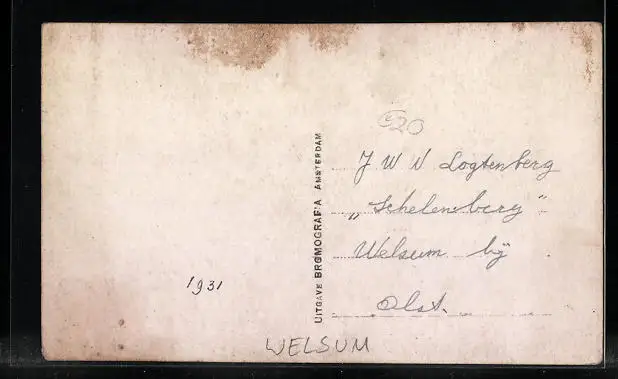 1931
UITGAVE BROMOGRAFIA AMSTERDAM
€20
J W N Logtenberg
„Schelensberg"
Welsum bÿ
Olst.
WELSUM